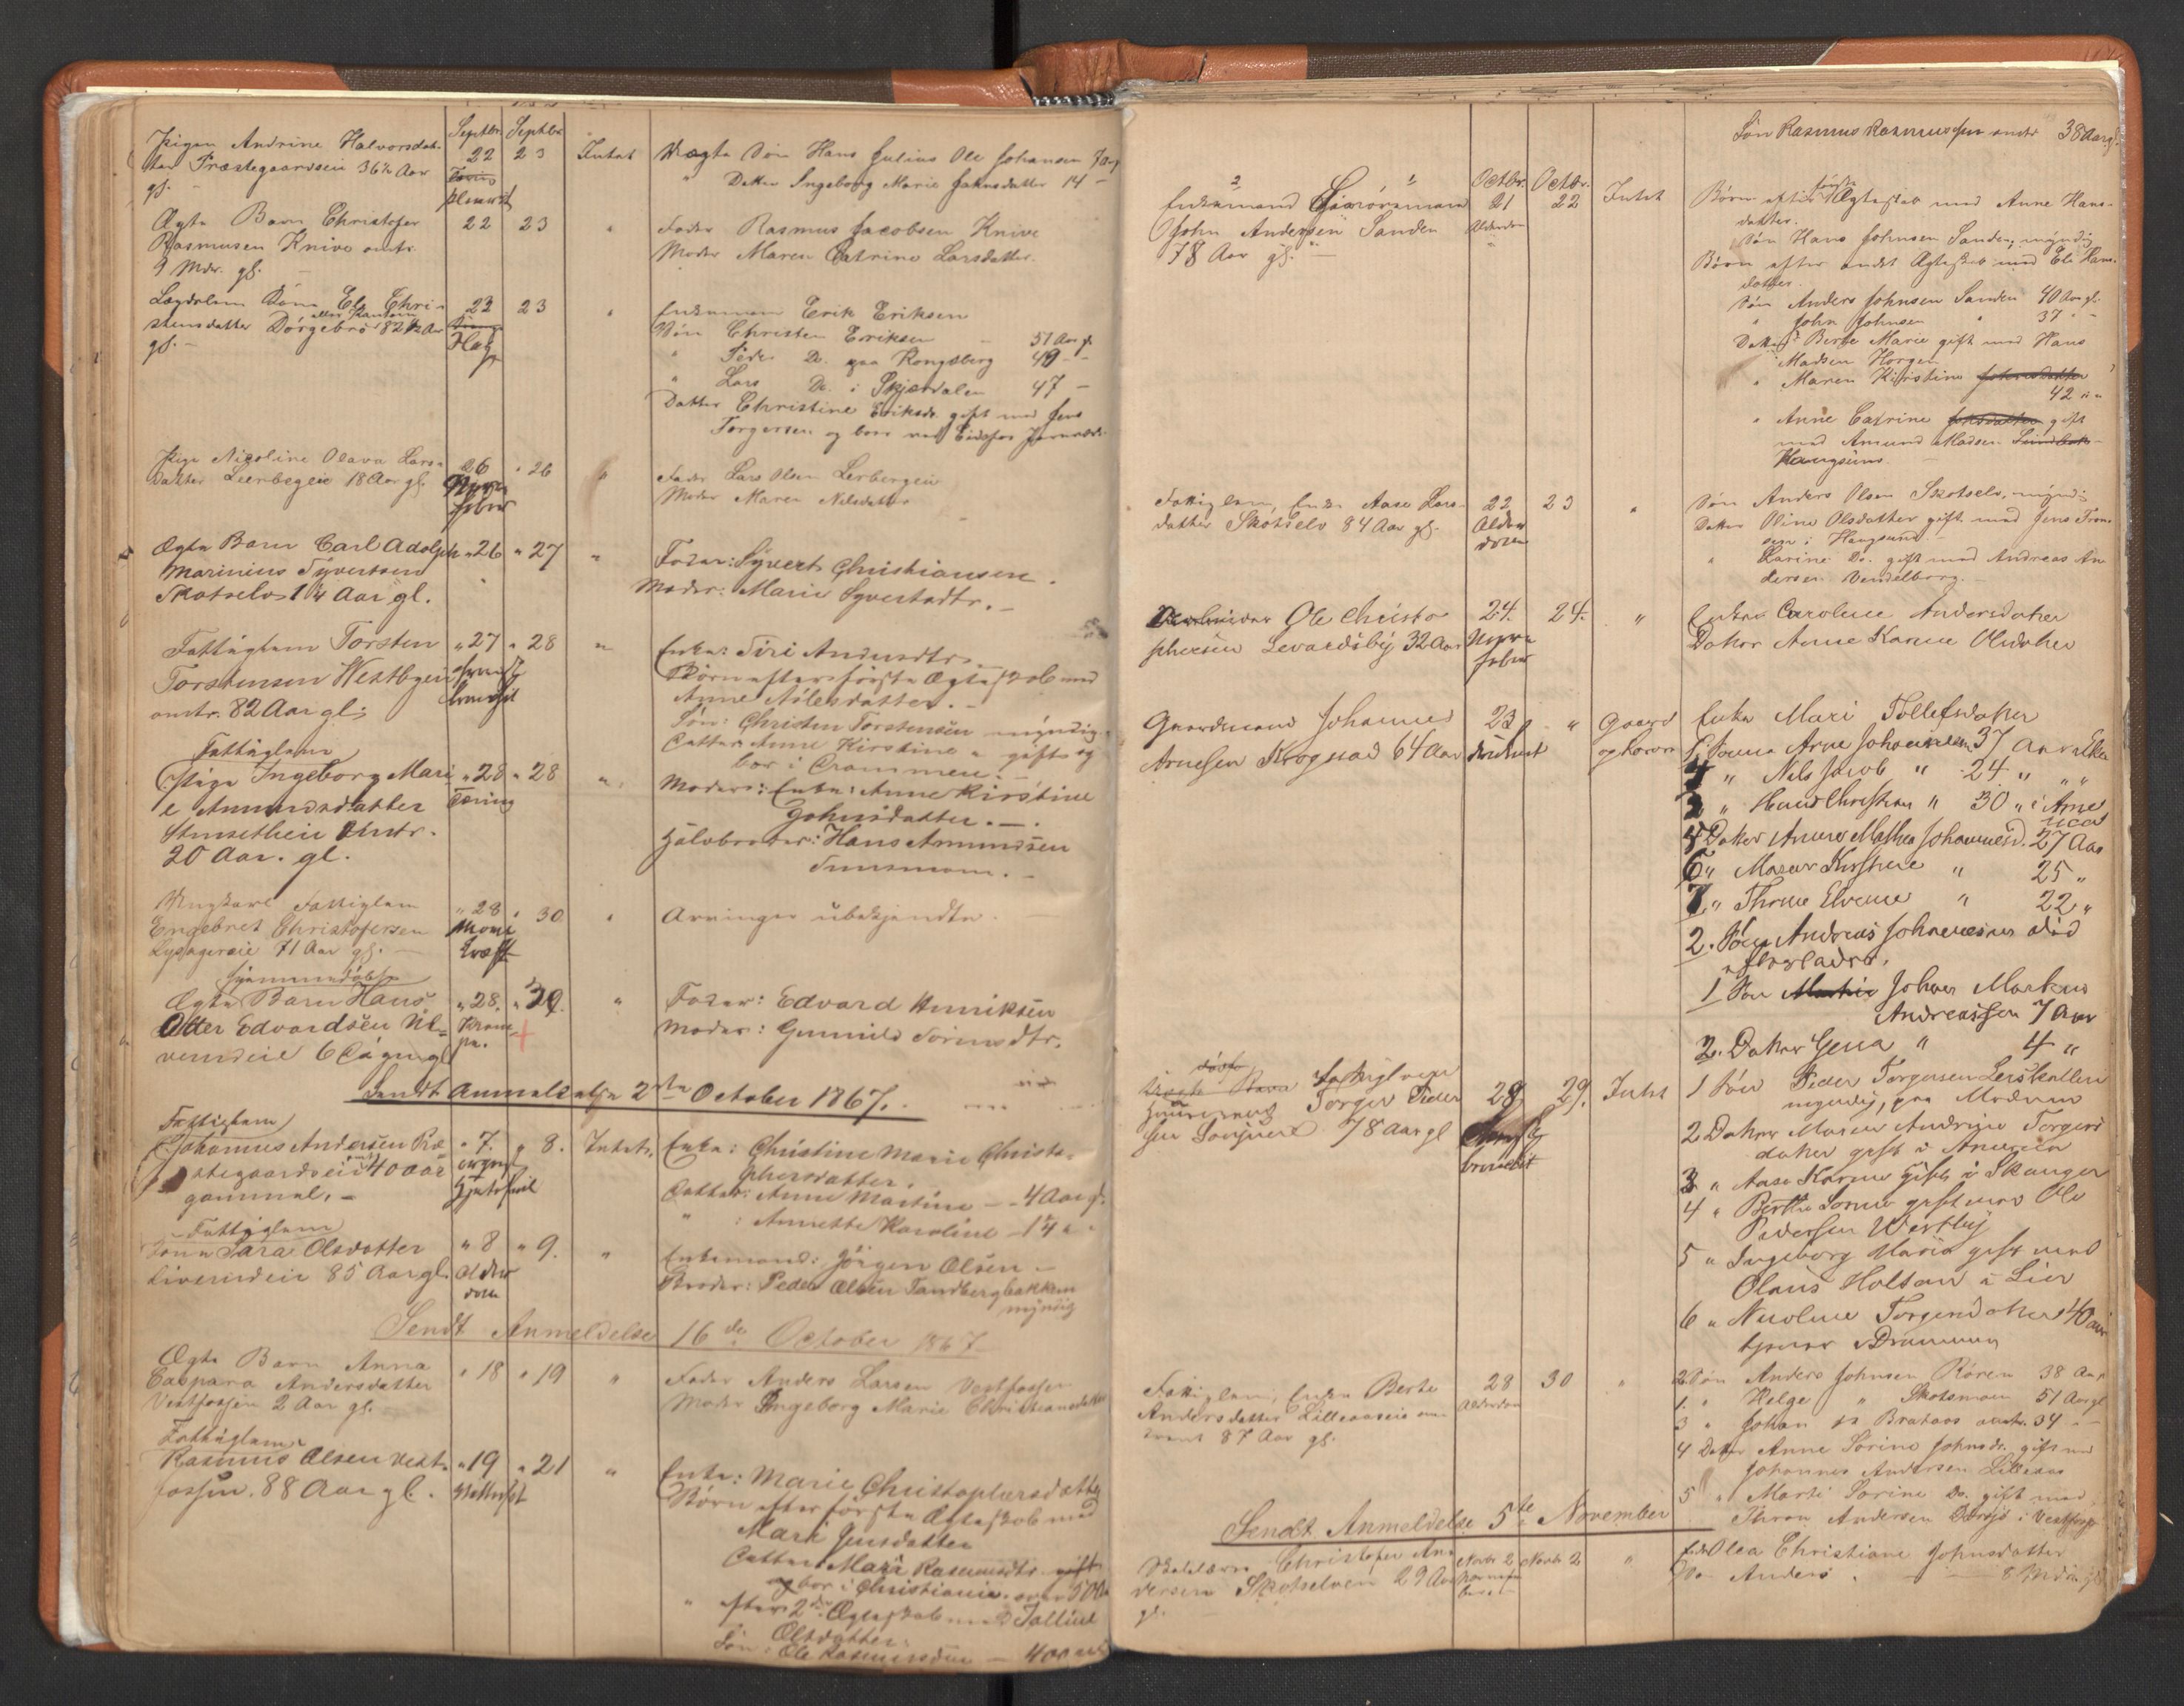 Septbr. Septbr.
Pigen Andrine Halvorsdat-
ter Præstegaardseie 36½ Aar 22 23 Intet Uægte Søn Hans Julius Ole Johansen 7 Aar
gl. " Datter Ingeborg Marie Jahnsdatter 14 –
Ægte Barn Christofer 22 23 " Fader Rasmus Jacobsen Knive
Rasmusen Knive omtr. Moder Maren Catrine Larsdatter.
9 Mdr. gl. –
Lægdslem Kone Els Chri- 22 23 " Enkemand Erik Eriksen
stensdatter Dörgebrö 82½ Aar Søn Christen Eriksen – 51 Aar gl
gl. – " Peder Do. paa Kongsberg 49 –
" Lars Do. i Skjærdalen 47 –
Datter Christine Eriksdr. gift med Jens
Torgersen og boer ved Eidsfos Jernværk.
Pige Nicoline Olava Lars- 26 " 26 " Fader Lars Olsen Lerbergeie
datter Leerbegeie 18 Aar gl. Nerve Moder Maren Nilsdatter
feber
Ægte Barn Carl Adolph " 26 " 27 " Fader: Syvert Christiansen.
Marinius Syvertsen Moder: Marie Syvertsdtr. –
Skotselv 1¼ Aar gl.
Fattiglem Torsten " 27 " 28 " Enke: Siri Andersdtr.
Torstensen Westbyeie Børn efter første Ægteskab med
omtr. 82 Aar gl. Anne Nilsdatter. –
Søn: Christen Torstensen myndig.
Datter Anne Kirstine " gift og
bor i Drammen. –
Fattiglem
Pige Ingeborg Mari " 28 " 28 " Moder: Enke: Anne Kirstine
e Amundsdatter Tæring Johnsdatter. –
Stensetheie Omtr. Halvbroder: Hans Amundsen
20 Aar. gl.
Ungkarl Fattiglem " 28 " 30 " Arvinger ubekjendte. –
Engebret Christofersen
Lysagereie 71 Aar gl. –
Hjemmedöbt
Ægte Barn Hans " 28. " Fader: Edvard Henriksen
Otter Edvardsen Kram Moder: Gunnild
6 Dage gl. pe.
Sendt Anmeldelse 2den October 1867.
Fattiglem
Johannes Andersen Præ " 7. " 8. Intet. Enke: Christine Marie Christo-
stegaardseie 40 Aar phersdatter.
gammel. – Hjertefeil Datter: Anne Martine – 4 Aar gl.
" : Annette Karoline – 1¼ "
Fattiglem
Kone Sara Olsdatter " 8 " 9. " Enkemand: Jörgen Olsen –
85 Aar gl. Alder Broder: Peder Olsen Sandbergbakken
dom myndig
Sendt Anmeldelse 16de October 1867
Ægte Barn Anna " 18 " 19 " Fader Anders Larsen Vestfossen
Caspara Andersdatter Moder Ingeborg Marie Christiansdatter
Vestfossen 2 Aar gl.
Fattiglem
Rasmus Olsen Vest- " 19 " 21 " Enke: Marie Christophersdatter
fossen. 88 Aar gl. Børn efter første Ægteskab med
Mari Jensdatter
Datter Mari Rasmusdtr. gift
og bor i Christiania. over 50 Aar
" efter 2det Ægteskab med
Olsdatter:
Søn: Ole Rasmussen – 40 Aar
Søn Rasmus Rasmussen omtr 38 Aar gl.
2 1 Octbr. Octbr.
Enkemand 21 22 Intet Børn efter første Ægteskab med Anne Hans-
John Andersen Sanden Alderdom datter.
78 Aar gl. – Søn Hans Johnsen Sanden, myndig
Børn efter andet Ægteskab med Eli Hans-
datter.
Søn Anders Johnsen Sanden 40 Aar gl.
" John Johnsen " 37 " –
Datter Berte Marie gift med Hans
Madsen Horgen
" Maren Kirstine Johnsdatter
42 " "
" Anne Catrine Johnsdatter gift
med Amund Madsen
Haugsund
Fattiglem, Enke Aase Lars- 22 23 " Søn Anders Olsen Skotselv, myndig
datter Skotselv 84 Aar gl. Alder Datter Oline Olsdatter gift med Jens Tron-
dom sen i Haugsund
" Karine Do. gift med Andreas An-
dersen Vendelborg. –
Ole Christo 24. 24. " Enke Caroline Andersdatter
phersen Levardsby 32 Aar Nerve Datter Anne Karine Olsdatter
feber
Gaardmand Johannes 23 " Gaard Enke Mari Tollefsdatter
Arnesen Krogstad 64 Aar og Løsøre 1. Sønn Arne Johannesen 37 Aar
4 " Nils Jacob " 24 " " "
3 " Hans Christian " 30 " i Ame
rica
5 Datter Anne Mathea Johannesd. 27 Aar
6 " Maren Kirstine " 25 "
7 " Thrine Elvine " 22 "
2. Søn Andreas Johannesen død
efterladte.
1 Søn Johan Markus
Andreassen 7 Aar
2. Datter Gina " 4 "
Fattiglem
Torger Peder 28 29. Intet 1 Søn Peder Torgersen
sen 78 Aar gl myndig, paa Modum
2 Datter Maren Andrine Torgers
datter gift i America
3 " Aase Karine Gift i Skauger
4 " Berthe Sorine gift med Ole
Pedersen Westby
5 " Ingeborg Maria gift med
Olaus Holtan i Lier
6 " Nicoline Torgersdatter 40 aar
tjener i Drammen
Fattiglem, Enke Berte 28 30 " 2 Søn Anders Johnsen Røren 38 Aar
Andersdatter Lilleaaseie om Alderdom 1. " Helge " Skotsmoen 51 Aar gl
trent 87 Aar gl. 3 " Johan Do Brataas omtr. 34 " –
4 Datter Anne Sorine Johnsdr. gift med
Johannes Andersen Lilleaas
5 " Marti Sorine Do. gift med
Thron Andersen i Vestfoss
Sendt Anmeldelse 5te November
Christofer An- Novbr 2 Novbr 2 " Enke Olea Christiane Johnsdatter
dersen Skotselven 29 Aar Søn Anders " – 8 Mdr. gl
gl.